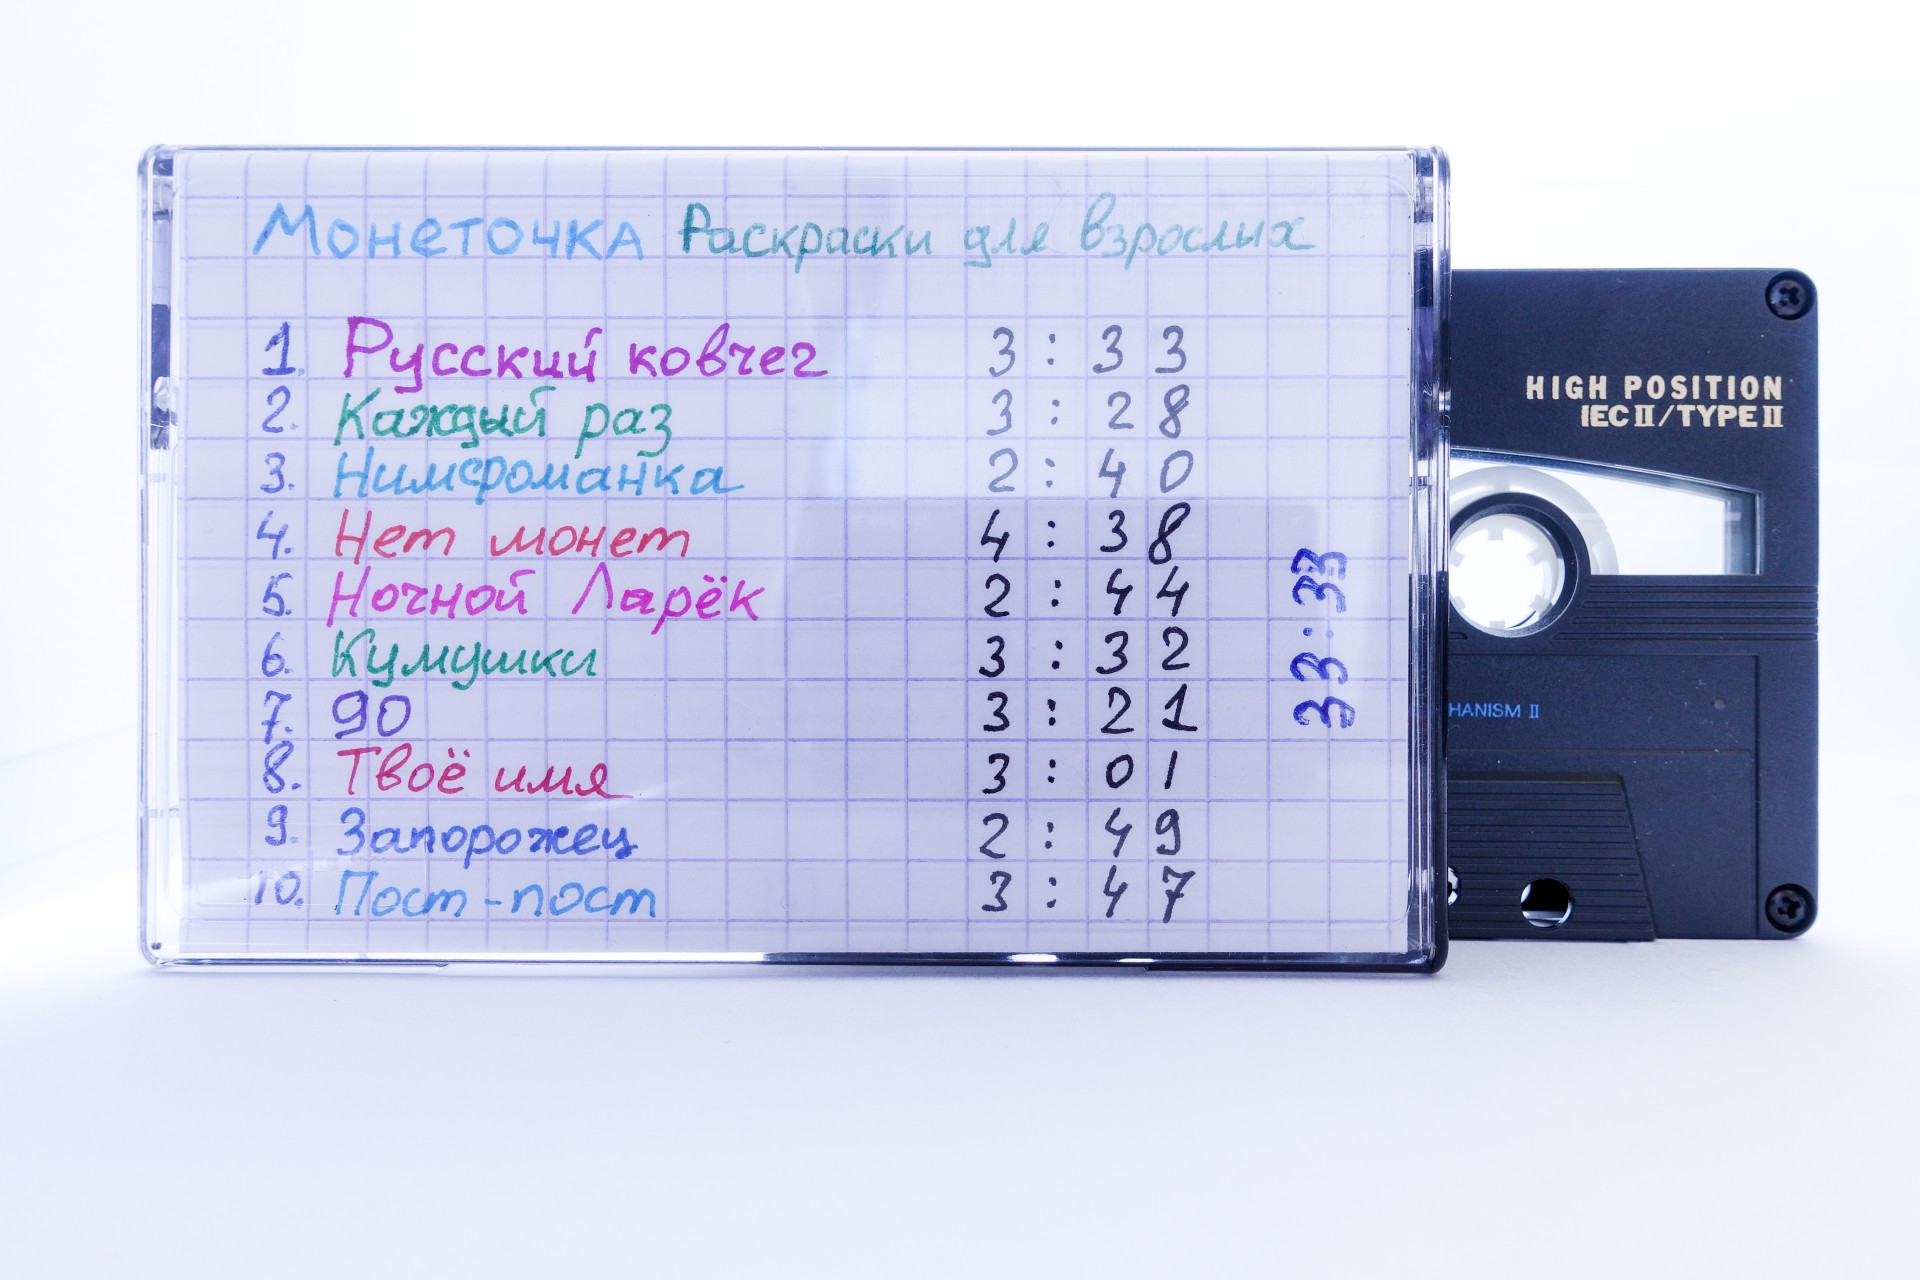 Монеточка Раскраски для взрослых
1. Русский ковчег 3:33
2. Каждый раз 3:28
3. Нимфоманка 2:40
4. Нет монет 4:38
5. Ночной Ларёк 2:44
6. Кумушки 3:32
7. 90 3:21
8. Твоё имя 3:01
9. Запорожец 2:49
10. Пост-пост 3:47
33:33
HIGH POSITION
IEC II/TYPE II
HANISM II